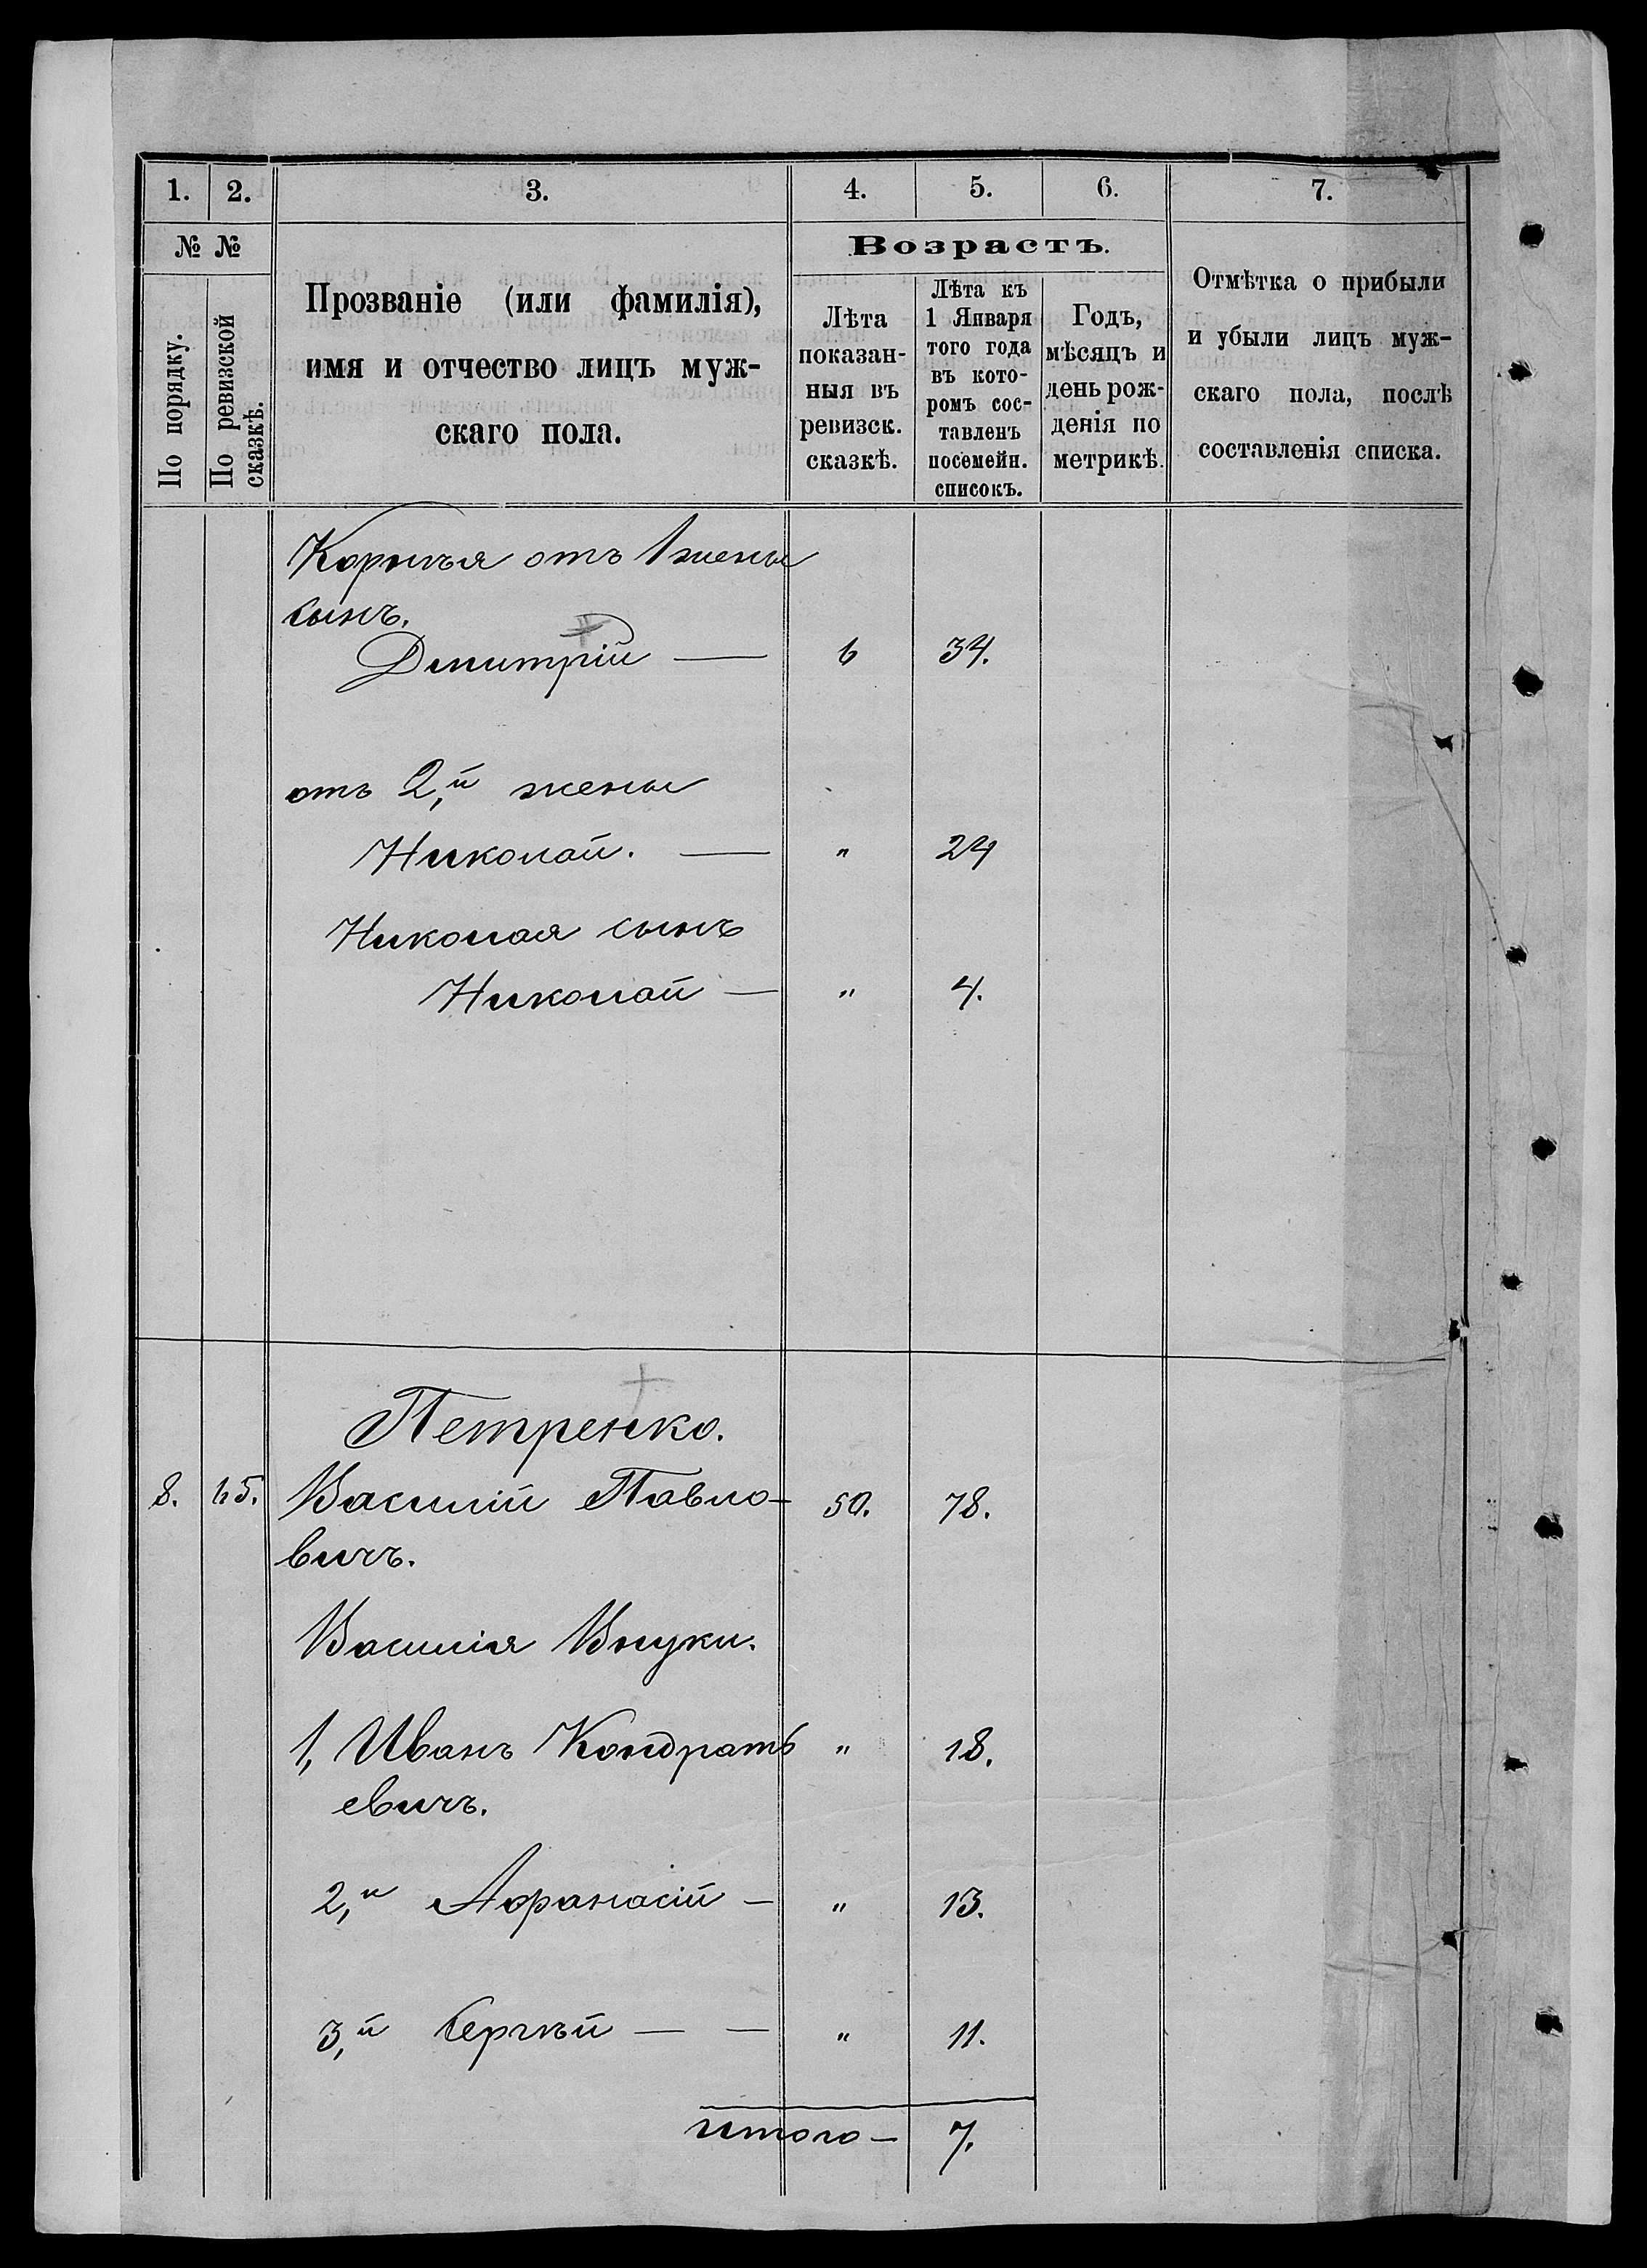 1. 2. 3. 4. 5. 6. 7.
№ №
По порядку.
По ревизской
сказкѣ.
Прозваніе (или фамилія),
имя и отчество лицъ муж-
скаго пола.
Возрастъ.
Лѣта
показан-
ныя въ
ревизск.
сказкѣ.
Лѣта къ
1 Января
того года
въ кото-
ромъ сос-
тавленъ
посемейн.
списокъ.
Годъ,
мѣсяцъ и
день рож-
денія по
метрикѣ.
Отмѣтка о прибыли
и убыли лицъ муж-
скаго пола, послѣ
составленія списка.
Корнѣя отъ 1 жены
сынъ.
Дмитрій — 6 34.
отъ 2,й жены
Николай. — " 24
Николая сынъ
Николай — " 4.
Петренко.
8. 45. Василій Павло- 50. 78.
вичъ.
Василія Внуки.
1, Иванъ Кондрать " 18.
евичъ.
2,й Афанасій — " 13.
3,й Сергѣй — — " 11.
Итого — 7.